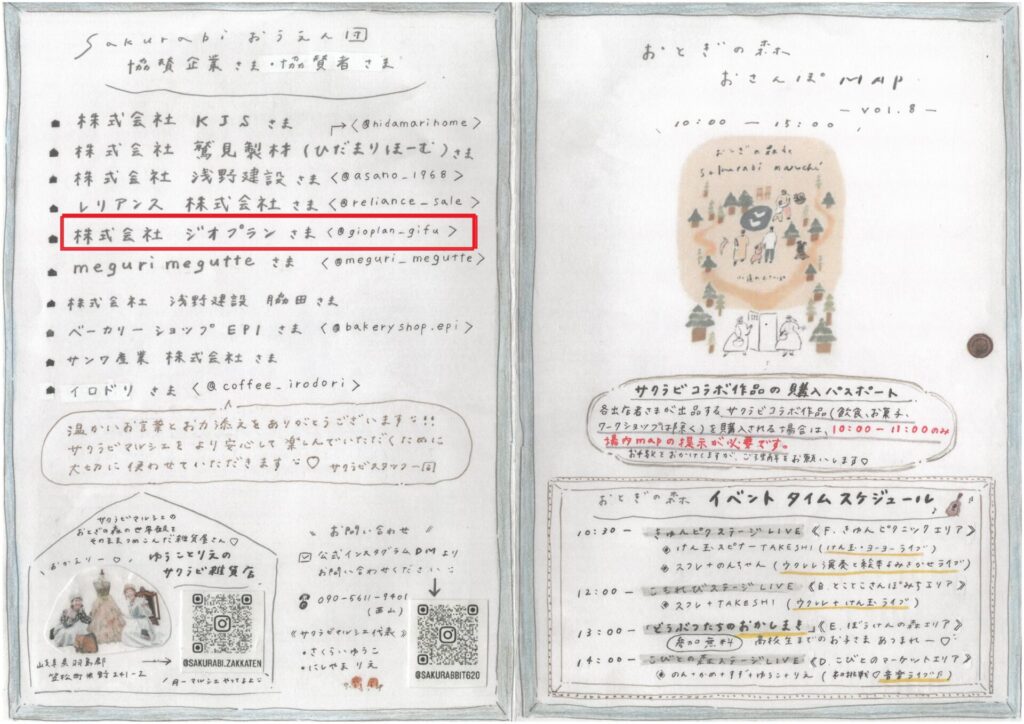 Sakurabi おうえん団
協賛企業さま・協賛者さま
株式会社 KJS さま
<@hidamarihome>
株式会社 鷲見製材(ひだまりほーむ)さま
株式会社 浅野建設 さま <@asano_1968>
レリアンス 株式会社 さま <@reliance_sale>
株式会社 ジオプラン さま <@gioplan_gifu>
meguri megutte さま <@meguri_megutte>
株式会社 浅野建設 脇田さま
ベーカリーショップ EPI さま <@bakeryshop.epi>
サンワ産業 株式会社 さま
イロドリ さま <@coffee_irodori>
温かいお言葉とお力添えをありがとうございます!!
サクラビマルシェをより安心して楽しんでいただくために
大切に使わせていただきます♡ サクラビスタッフ一同
サクラビマルシェの
おとぎの森の世界観を
そのままつめこんだ雑貨屋さん♡
おかえりー♡
ゆうことりえの
サクラビ雑貨店
@SAKURABI.ZAKKATEN
岐阜県羽島郡
笠松町米野241-2
月一マルシェやってるよ
お問い合わせ
公式インスタグラムDMより
お問い合わせください
090-5611-9401
(西山)
《サクラビマルシェ代表》
・さくらいゆうこ
・にしやまりえ
@SAKURABBIT620
おとぎの森
おさんぽMAP
-VOL.8-
10:00 — 15:00
おとぎの森
Sakurabi maruchi
サクラビコラボ作品の購入パスポート
各出店者さまが出品するサクラビコラボ作品(飲食、お菓子、
ワークショップは除く)を購入される場合は、10:00-11:00のみ
場内mapの提示が必要です。
お手数をおかけしますが、ご理解をお願いします♡
おとぎの森 イベント タイムスケジュール
10:30 — きゅんピクステージLIVE 《F.きゅんピクニックエリア》
けん玉スピナーTAKESHI (けん玉・ヨーヨーライブ)
スフレ+のんちゃん (ウクレレ演奏と絵本よみきかせライブ)
12:00 — こもれびステージLIVE 《B.とことこさんぽみちエリア》
スフレ+TAKESHI (ウクレレ+けん玉ライブ)
13:00 — 「どうぶつたちのおかしまき」 《E.ぼうけんの森エリア》
参加無料 高校生までのお子さまあつまれー♡
14:00 — こびとの森ステージLIVE 《D.こびとのマーケットエリア》
のん+かの+すぎ+ゆうこ+りえ (初挑戦♡音楽ライブ♪)